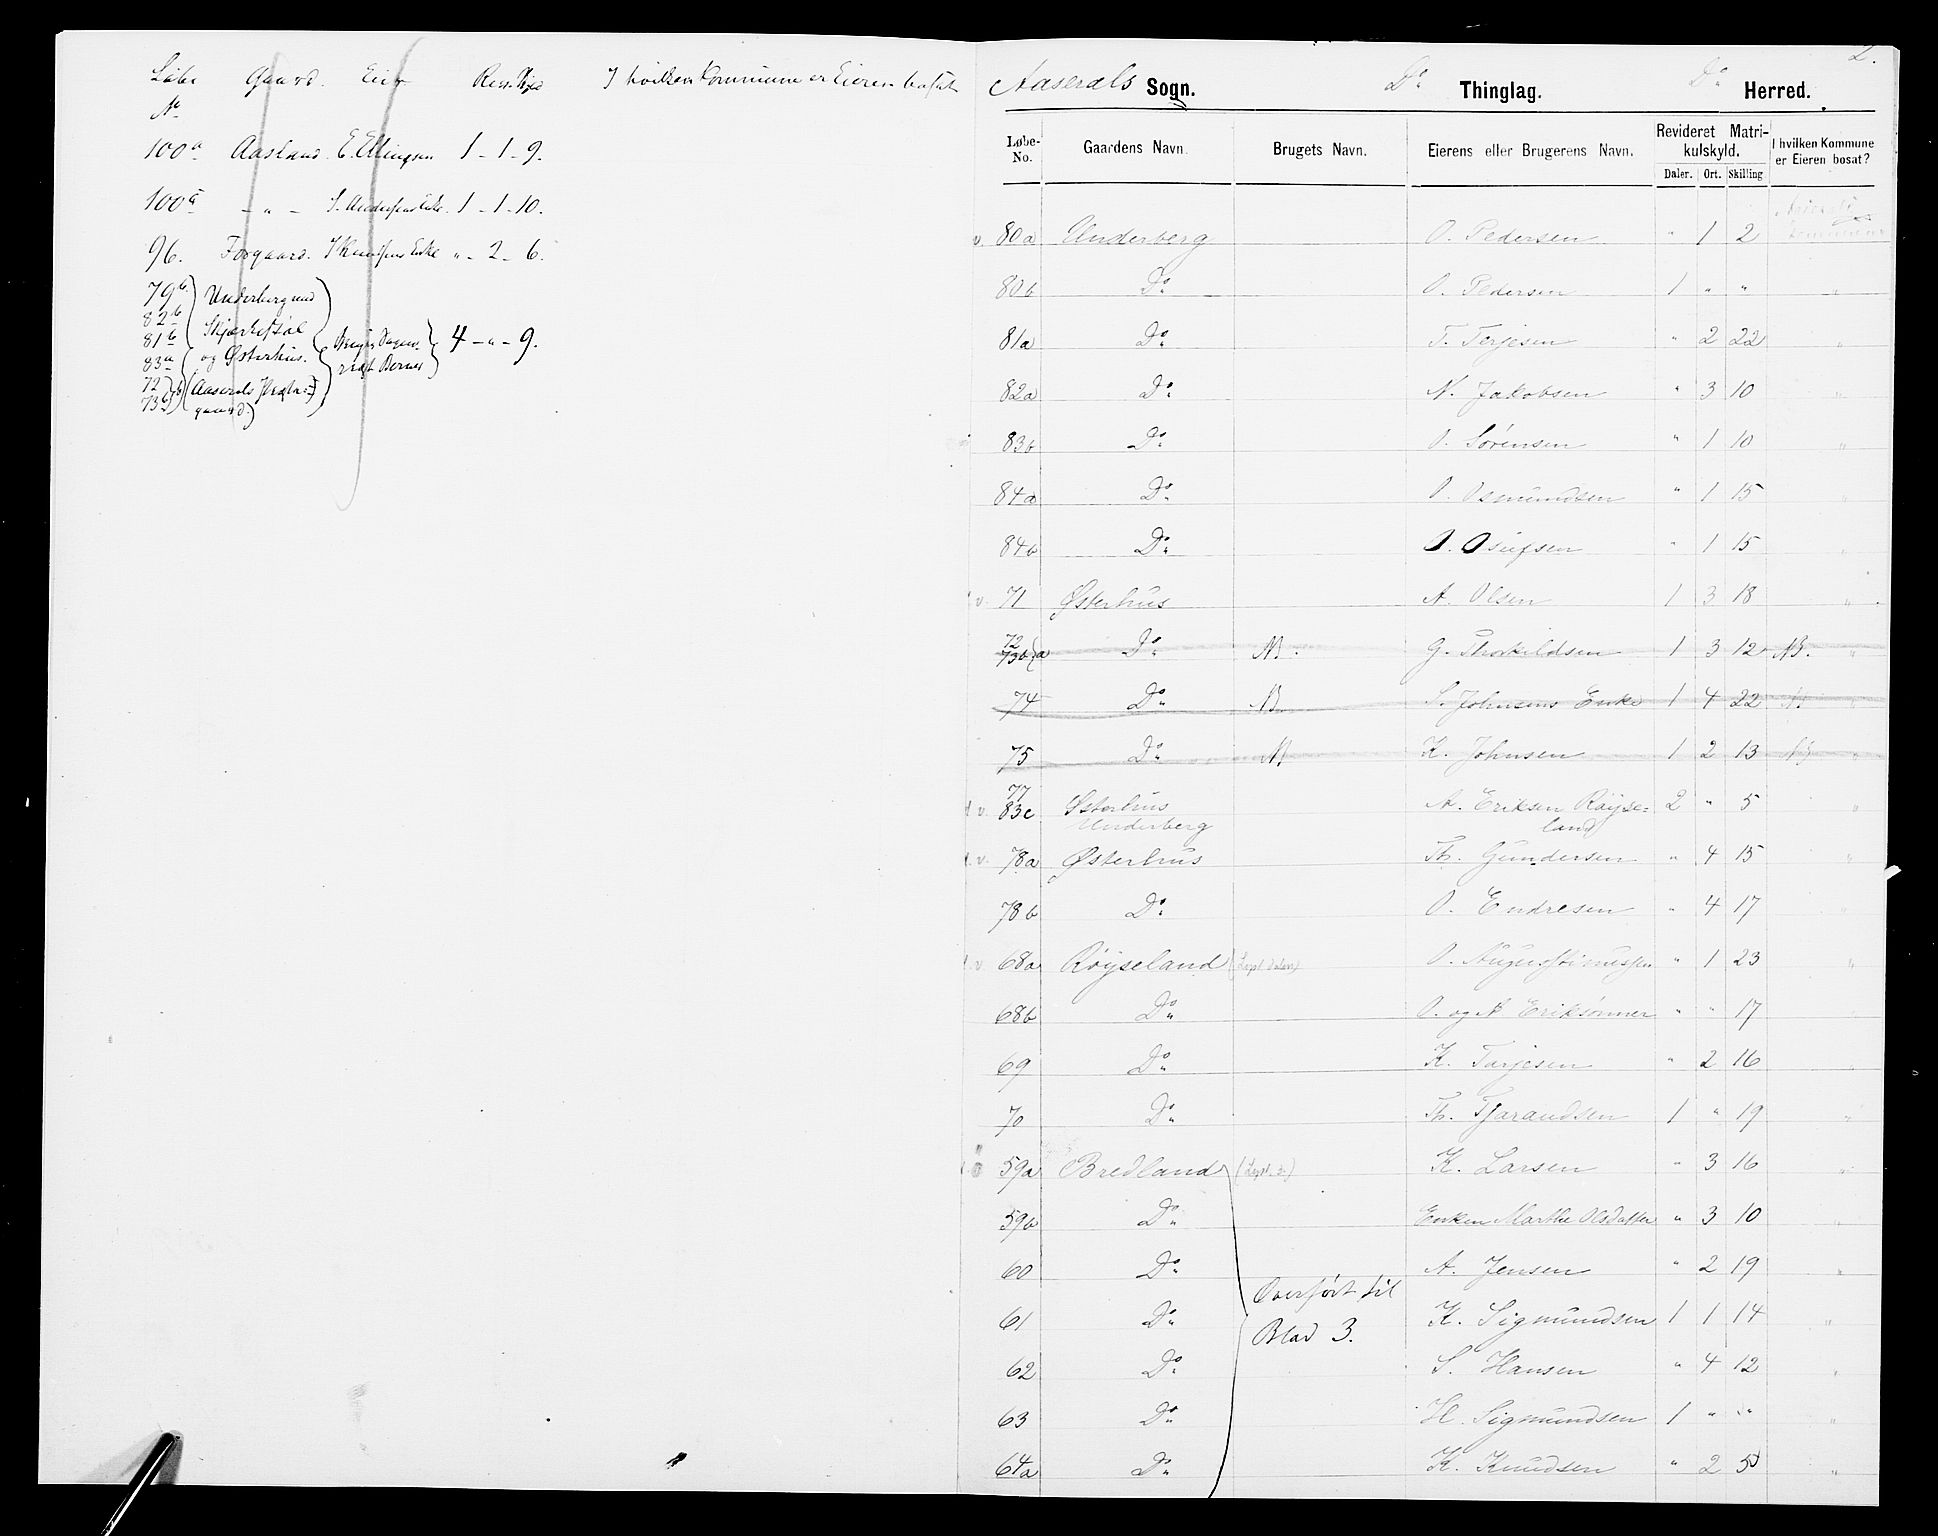 Løbe Gaard. Eier Rev. Skyld I hvilken Kommune er Eieren bosat
No
100a Aasland. E. Ellingsen 1 - 1 - 9.
100c - " - S. Andersens Enke. 1 - 1 - 10.
96. Forgaard. Knudsens Enke " - 2 - 6.
79b Underberg
82b Skjærkesdal
81b
83a og Østerhus. 4 - " - 9.
72 (Aaserals
73b gaard.)
2.
Aaserals Sogn. Do Thinglag. Do Herred.
Løbe-No. Gaardens Navn. Brugets Navn. Eierens eller Brugerens Navn. Revideret Matrikulskyld. I hvilken Kommune er Eieren bosat?
Daler. Ort. Skilling
Aaserals
Kommune
v. 80a Underberg O. Pedersen " 1 2
80b Do O. Pedersen 1 " " "
81a Do T. Terjesen " 2 22 "
82a Do N. Jakobsen " 3 10 "
83b Do O. Sørensen " 1 10 "
84a Do O. Osmundsen " 1 15 "
84b Do O. Osufsen " 1 15 "
v. 71 Østerhus A. Olsen 1 3 18 "
72
73b}a Do NB. G. Thorkildsen 1 3 12 NB. "
74 Do NB S. Johnsens Enke 1 4 22 NB "
75 Do NB K. Johnsen 1 2 13 NB "
77
v. 83c Østerhus A. Eriksen Røijse= 2 " 5 "
Underberg land
v. 78a Østerhus Th. Gundersen " 4 15 "
78b Do O. Endresen " 4 17 "
v. 68a Røijseland O. Augustinussen " 1 23 "
68b Do O. og A Eriksønner " " 17 "
69 Do K. Tarjesen " 2 16 "
70 Do Th. Tjarandsen 1 " 19 "
59a Bredland K. Larsen " 3 16 "
59b Do Enken Marthe Olsdatter " 3 10 "
60 Do A. Jensen " 2 19 "
Overført til
61 Do K. Sigmundsen 1 1 14 "
Blad 3.
62 Do S. Hansen " 4 12 "
63 Do H. Sigmundsen 1 " " "
64a Do K. Knudsen " 2 5 "